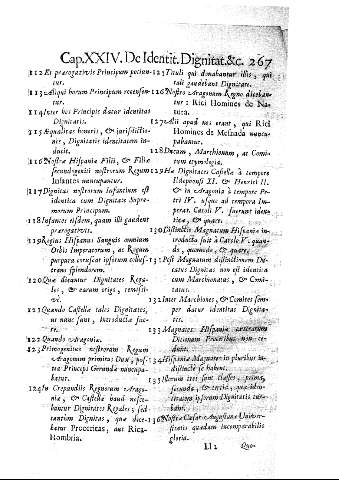 Cap. XXIV. De Identit. Dignitat. &c. 267
112 Et prærogativis Principum potiun-
tur.
113 Aliqui horum Principum recensen-
tur.
114 Inter hos Principis datur identitas
Dignitatis.
115 Æqualitas honoris, & jurisdictio-
nis, Dignitatis identitatem in-
ducit.
116 Nostræ Hispaniæ Filii, & Filiæ
secundigeniti nostrorum Regum
Infantes nuncupantur.
117 Dignitas nostrorum Infantium est
identica cum Dignitate Supre-
morum Principum.
118 Infantes iisdem, quam illi gaudent
prærogativis.
119 Regius Hispanus Sanguis omnium
Orbis Imperatorum, ac Regum
purpura coruscat ipsorum collus-
trans splendorem.
120 Quæ dicantur Dignitates Rega-
les, & earum origo, remissi-
vè.
121 Quando Castellæ tales Dignitates,
ut nunc sunt, introductæ fue-
re.
122 Quando Aragoniæ.
123 Primogenitus nostrorum Regum
Aragonum primitus Dux, pos-
tea Princeps Gerundæ nuncupa-
batur.
124 In Coepandiis Regnorum Arago-
niæ, & Castellæ haud nosce-
bantur Dignitates Regales; sed
tantùm Dignitas, quæ dice-
batur Proceritas, aut Rica-
Hombria.
125 Tituli qui donabantur illis, qui
tali gaudebant Dignitate.
126 Nostro Aragonum Regno diceban-
tur: Rici Homines de Na-
tura.
127 Alii apud nos erant, qui Rici
Homines de Mesnada nuncu-
pabantur.
128 Ducum, Marchionum, ac Comi-
tum etymologia.
129 Hæ Dignitates Castellæ à tempore
Ildephonsi XI. & Henrici II.
& in Aragonia à tempore Pe-
tri IV. usque ad tempora Im-
perat. Caroli V. fuerunt iden-
titæ, & quare.
130 Distinctio Magnatum Hispaniæ in-
troducta fuit à Carolo V. quan-
do, quomodo, & quare.
131 Post Magnatum distinctionem Du-
catus Dignitas non est identica
cum Marchionatus, & Comi-
tatus.
132 Inter Marchiones, & Comites sem-
per datur identitas Dignita-
tis.
133 Magnates Hispaniæ cæterarum
Ditionum Proceribus non ce-
dunt.
134 Hispaniæ Magnates in pluribus in-
distinctè se habent.
135 Illorum tres sunt classes, prima,
secunda, & tertia, quæ iden-
titatem ipsorum Dignitatum tur-
bant.
136 Nostræ Cæsar-Augustanæ Univer-
sitatis quædam incomparabilis
gloria.
Ll 2 Quo-